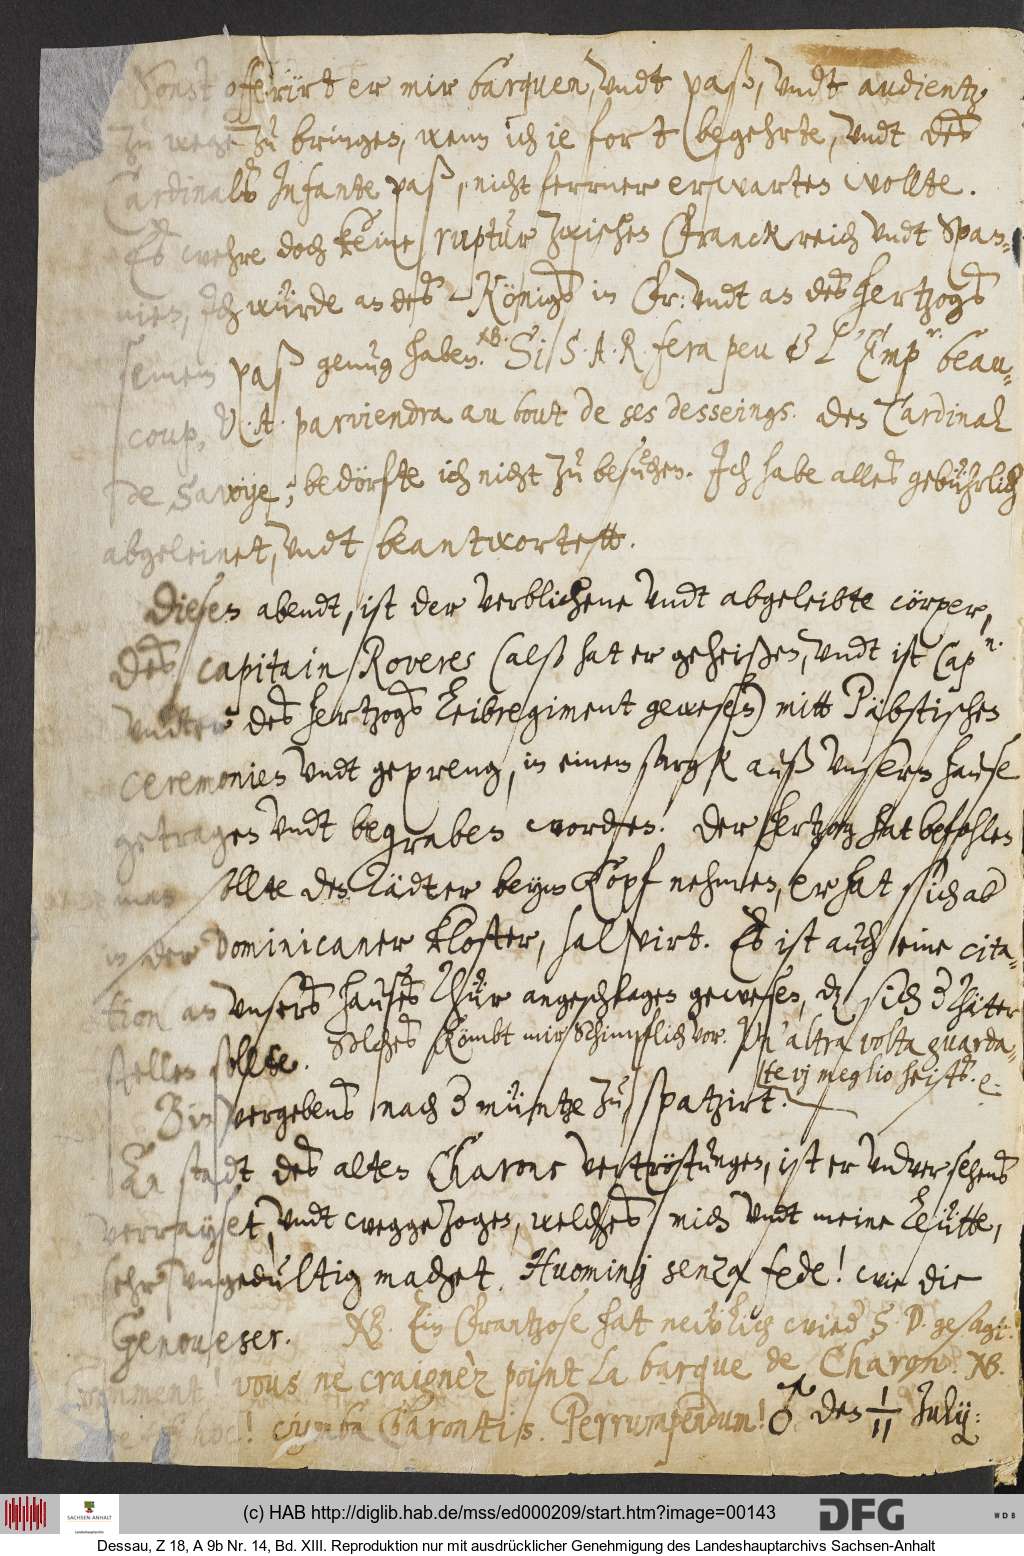 Sonst offerirt er mir barquen, undt paß, undt audientz
zu wege zu bringen, wenn ich ie fort begehrte, undt des
Cardinals Infante paß, nicht ferrner erwarten wollte.
Es wehre doch keine ruptur zwischen Franckreich undt Span-
nien, Ich würde an des Königs in Fr: undt an des Hertzogs
seinem paß genug haben. NB. Si S. A. R. fera peu & L'Emp.r beau-
coup, V. A. parviendra au bout de ses desseings. Den Cardinal
de Savoye, bedörfte ich nicht zu besuchen. Ich habe alles gebührlich
abgeleinet, undt beantwortett.
Diesen abendt, ist der verblichene undt abgeleibte cörper,
des capitain Roveres (alß hat er geheißen, undt ist Cap.n
undter des Hertzogs Leibregiment gewesen) mitt Päbstischen
ceremonien undt gepreng, in einem sargk auß unserm hause
getragen undt begraben worden. Der Hertzog hat befohlen
man sollte den Tädter beym Kopf nehmen, er hat sich ab
in der Dominicaner kloster, salvirt. Es ist auch eine cita-
tion an unsers hauses thür angeschlagen gewesen, dz sich der Thäter
stellen sollte. Solches kömbt mir schimpflich vor. Un' altra volta guarda-
te vj meglio heists. e-
Bin vergebens nach der müntze zu spatzirt.
An stadt des alten Charons vertröstungen, ist er unversehens
verrayset, undt weggezogen, welches mich undt meine Leütte,
sehr ungedultig machet. Huominj senza fede! wie die
Genoueser. NB. Ein Frantzose hat neülich wied. S. D. gesagt:
Comment! vous ne craignèz point la barque de Charon. NB.
hoc! cymba Charontis. Perrumpendum! ♂ den 1/11 July:
(c) HAB http://diglib.hab.de/mss/ed000209/start.htm?image=00143
SACHSEN-ANHALT
DFG
WDB
Dessau, Z 18, A 9b Nr. 14, Bd. XIII. Reproduktion nur mit ausdrücklicher Genehmigung des Landeshauptarchivs Sachsen-Anhalt